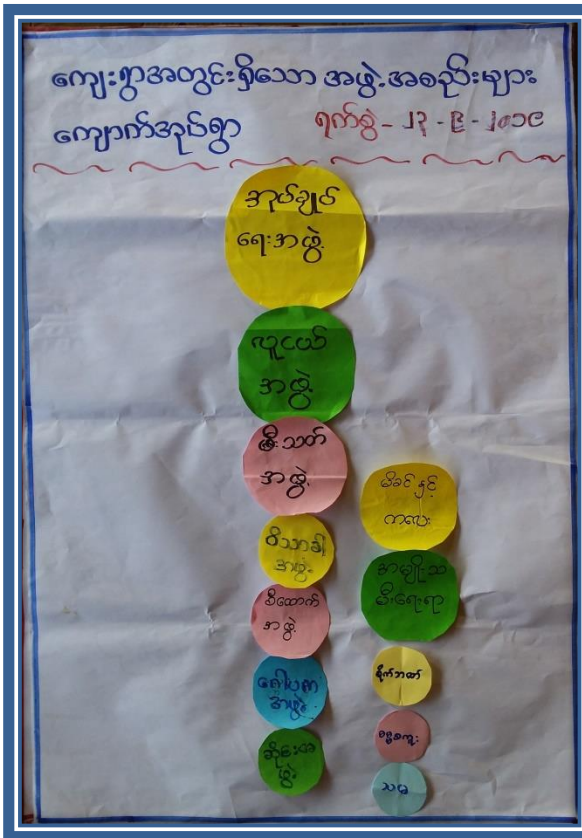 ကျေးရွာအတွင်းရှိသော အဖွဲ့အစည်းများ
ကျောက်အုပ်ရွာ ရက်စွဲ - ၂၃ - ၉ - ၂၀၁၉
အုပ်ချုပ်
ရေးအဖွဲ့
လူငယ်
အဖွဲ့
မီးသတ်
အဖွဲ့
ဝိသာခါ
အဖွဲ့
အဖွဲ့
ဂေါပက
အဖွဲ့
ဆိုင်းအ
ဖွဲ့
မိခင်နှင့်
ကလေး
အမျိုးသ
မီးရေးရာ
သမ